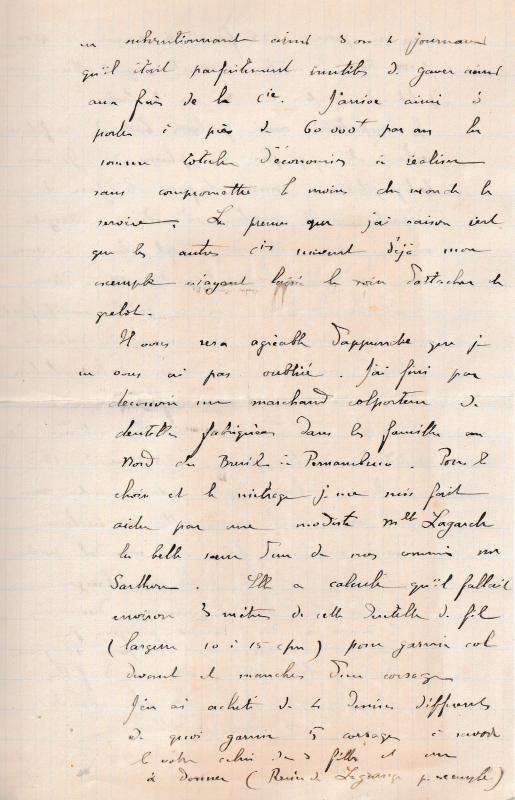 en subventionnant ainsi 3 ou 4 journaux
qu'il était parfaitement inutile de gaver ainsi
aux frais de la Cie. J'arrive ainsi à
porter à près de 60 000f par an la
somme totale d'économies à réaliser
sans compromettre le moins du monde le
service. La preuve que j'ai raison c'est
que les autres Cies suivent déjà mon
exemple m'ayant laissé le soin d'attacher le
grelot.
Il vous sera agréable d'apprendre que je
ne vous ai pas oubliée. J'ai fini par
découvrir un marchand colporteur de
dentelles fabriquées dans les familles au
Nord du Brésil à Pernambuco. Pour le
choix et le métrage je me suis fait
aider par une modiste Mlle Lagarde
la belle sœur d'un de nos commis mr
Sarthou. Elle a calculé qu'il fallait
environ 3 mètres de cette dentelle de fil
(largeur 10 à 15 c/m) pour garnir col
devant et manches d'un corsage
J'en ai acheté de 4 dessins différents
de quoi garnir 5 corsages à savoir
le votre celui des 3 filles et un
à donner (René de Lagrange p. exemple)